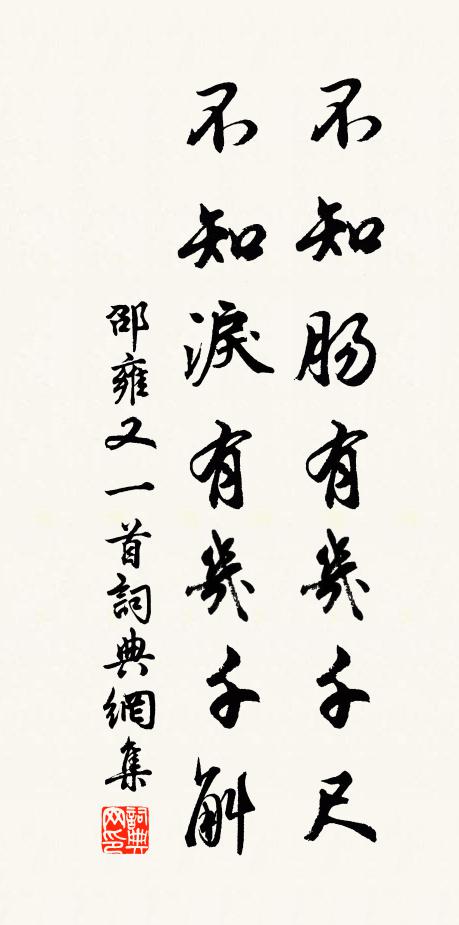 不知肠有幾千尺
不知淚有幾千斛
邵雍又一首詞典網集
詞典网印